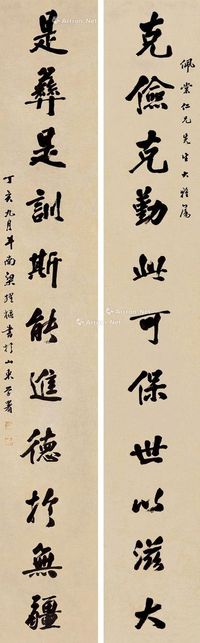 佩棠仁兄先生大雅属
克儉克勤此可保世以滋大
是彝是訓斯能進德於無疆
丁亥九月年南梁耀樞書於山東学署